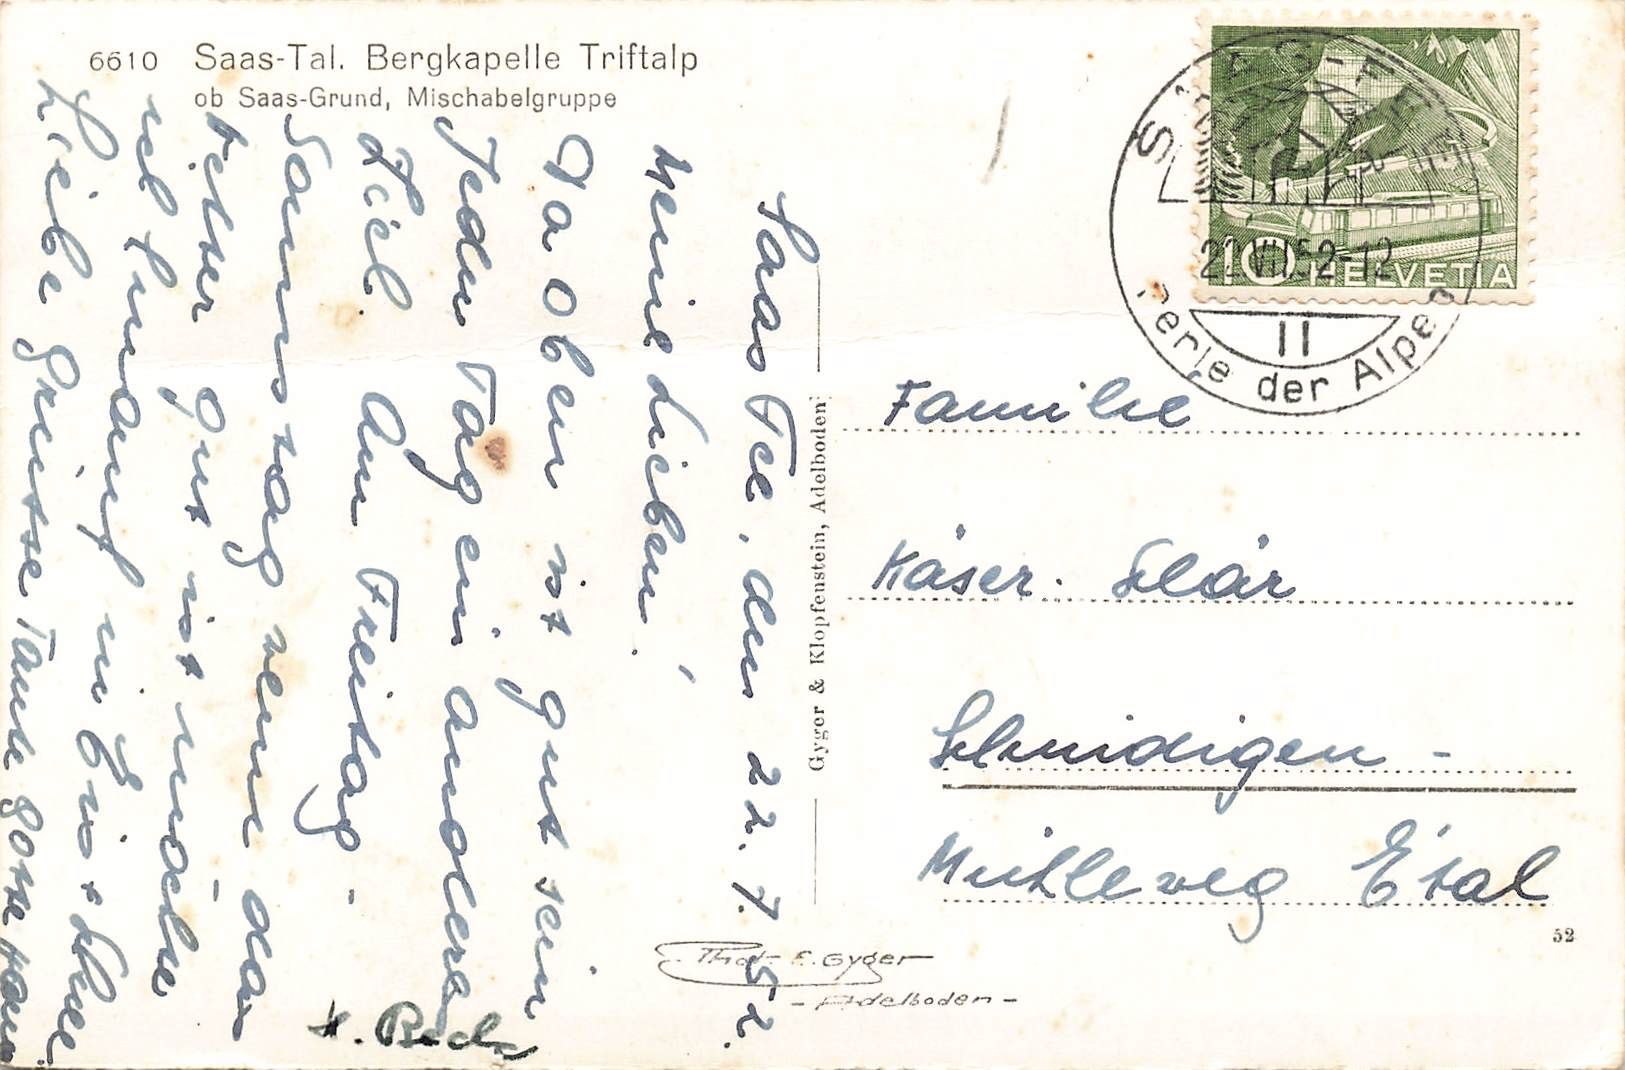 6610 Saas-Tal. Bergkapelle Triftalp
ob Saas-Grund, Mischabelgruppe
Saas Fee, den 22. 7. 52.
Meine Lieben!
Da oben ist gut sein
Jeden Tag ein anderes
Ziel. Am Freitag -
Samstag wenn das
Wetter gut ist möchte
ich hinauf in
Liebe Grüsse Tante
Gyger & Klopfenstein, Adelboden
Phot. E. Gyger
- Adelboden -
SAAS-FEE
HELVETIA
10
22.VII.52-12
II
Perle der Alpen
Familie
Käser. Schär
Schmidigen -
Mühleweg E'tal
52